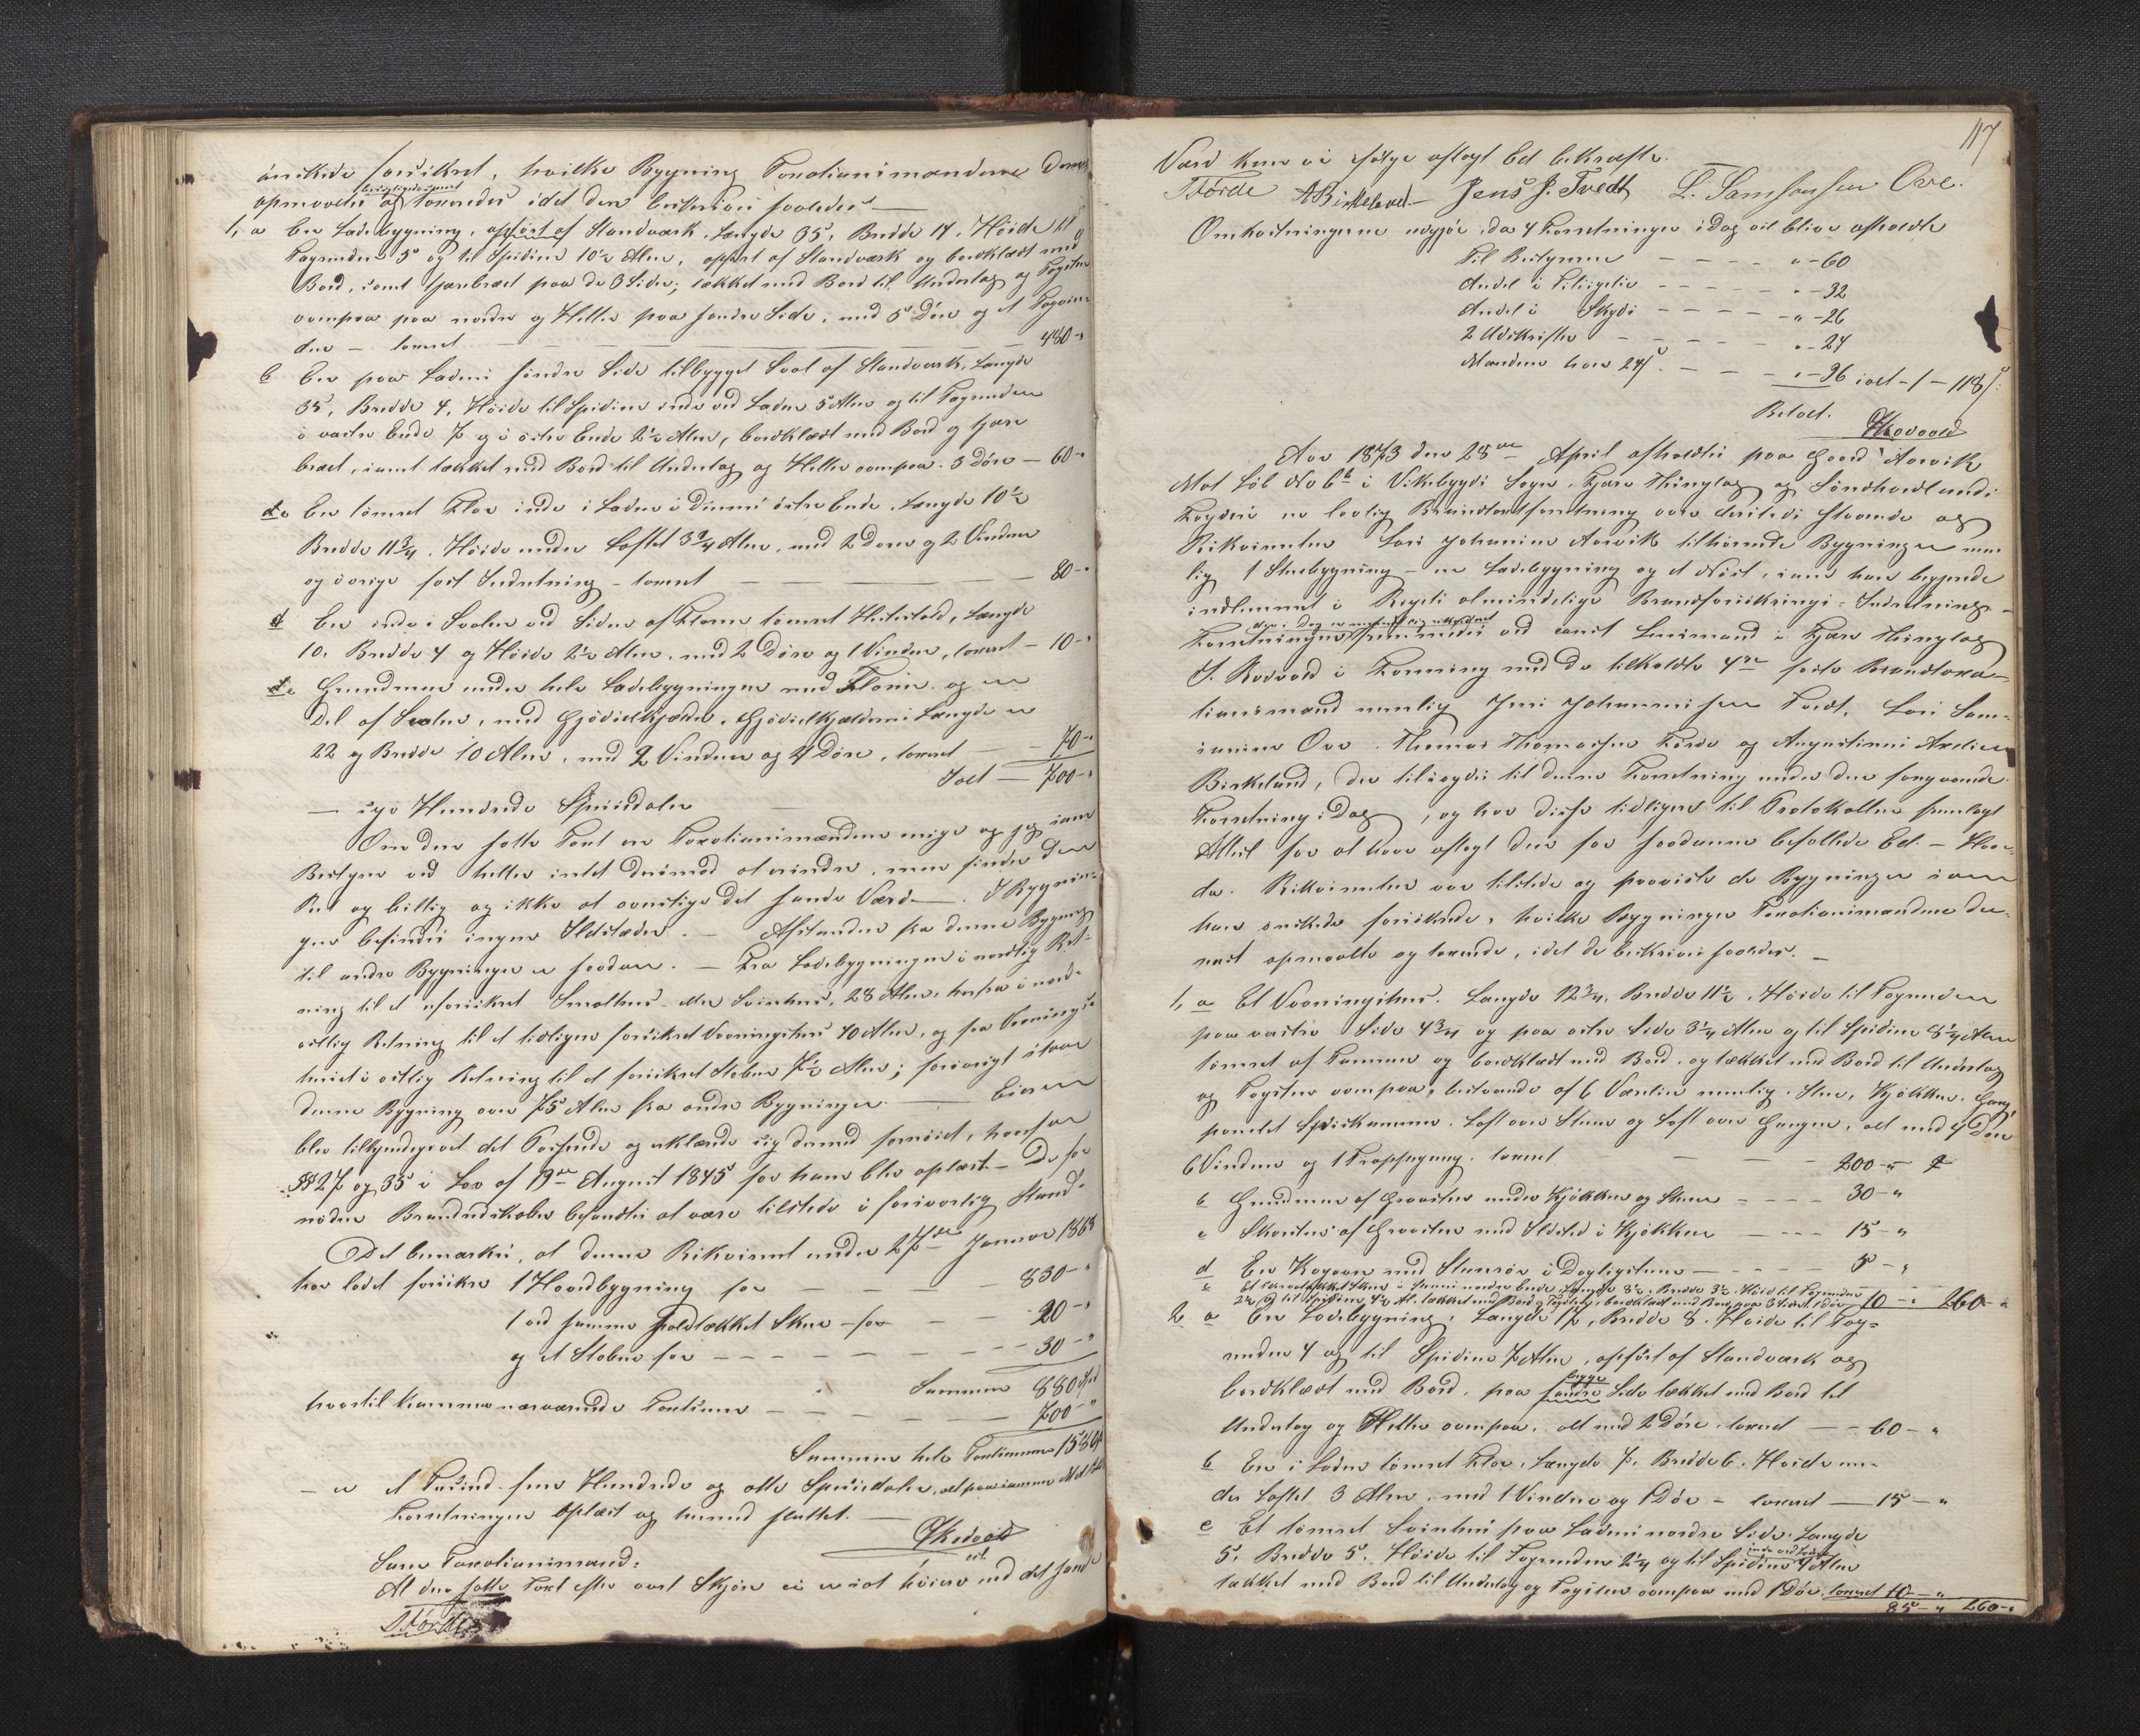 ønskede forsikret, hvilke Bygning Taxationsmændene dernæst
besigtigede samt
opmaalte og taxerede idet den beskrives saaledes —
1, a En Ladebygning, opført af Standværk, Længde 35, Bredde 14, Høide til
Tagrenden 5 og til Spidsen 10½ Alen, opført af Standværk og bordklædt med
Bord, samt tjærebræet paa de 3 Sider; tækket med Bord til Underlag og Tagsten
ovenpaa paa nordre og Heller paa søndre Side, med 5 Døre og et Tagvin-
due – taxeret — 480 -"
b En paa Ladens søndre Side tilbygget Sval af Standværk, Længde
35, Bredde 4, Høide til Spidsen inde ved Laden 5 Alen og til Tagrenden
i vestre Ende 7 og i østre Ende 2½ Alen, bordklædt med Bord og tjære
bræet, samt tækket med Bord til Underlag og Heller ovenpaa. 3 Døre — 60 -"
c En tømret Flor inde i Laden i dennes østre Ende, Længde 10½
Bredde 11¾, Høide under Loftet 3¾ Alen, med 2 Døre og 2 Vinduer
og øvrige fast Indretning – taxeret — 80 -"
d En inde i Svalen ved Siden af Floren tømret Hestestald, Længde
10, Bredde 4 og Høide 2½ Alen, med 2 Døre og 1 Vindue, taxeret — 10 -"
e Grundmur under hele Ladebygningen med Floren og en
Del af Svalen, med Gjødselkjælder. Gjødselkjælderens Længde er
22 og Bredde 10 Alen, med 2 Vinduer og 4 Døre, taxeret — 70 -"
Ialt — 700 -"
— syv Hundrede Speciedaler —
Om den satte Taxt er Taxationsmændene enige og jeg som
Bestyrer ved heller intet derimod at erindre, men finder den
Ret og billig og ikke at overstige det sande Værd —. I Bygnin-
gen befindes ingen Ildsteder. — Afstanden fra denne Bygning
til andre Bygninger er saadan. — Fra Ladebygningen i nordlig Ret-
ning til et uforsikret Smalehus eller Svinhus, 28 Alen, herfra i nord-
østlig Retning til et tidligere forsikret Vaaningshus 40 Alen, og fra Vaanings-
huset i østlig Retning til et forsikret Stabur 7½ Alen; forøvrigt staar
denne Bygning over 75 Alen fra andre Bygninger. — Eieren
blev tilkjendegivet det Passerede og erklærede sig dermed fornøiet, hvorfor
§§ 27 og 35 i Lov af 19de August 1845 for ham blev oplæst. – De for
nødne Brandredskaber befandtes at være tilstede i forsvarlig Stand.
Det bemærkes, at denne Rekvirent under 27de Januar 1868
har ladet forsikre 1 Hovedbygning for — 830 -"
1 ved samme tækket Skur for — 20 -"
og et Stabur for — 30 -"
Summa 880 Spd
hvortil kommer nærværende Taxtsum — 700 -"
Summa hele Taxtsummen 1580 Spd
— er et Tusind fem Hundrede og otte Speciedaler, alt paa samme Mat. No
Forretningen oplæst og hermed sluttet. —
Som Taxationsmænd:
At den satte Taxt efter vort Skjøn ei er sat høiere end det sande
TFørde
117
Værd kan vi ifølge aflagt Ed bekræfte.
TFørde ABirkeland Jens J. Tvedt L. Samsonsen Ove.
Omkostningerne udgjør, da 4 Forretninger idag vil blive afholdte
Til Bestyreren — "-60
Andel i Tilsigelse — "-32
Andel i Skyds — "-26
2 Udskrifter — "-24
Mændene hver 24 s — "-96 ialt -1-118 s.
Betalt.
Aar 1873 den 28de April afholdtes paa Gaard Aarvik
Mat Løb No 6b i Vikebygds Sogn, Fjære Thinglag og Søndhordlands
Fogderi en lovlig Brandtaxtforretning over dersteds staaende og
Rekvirenten Lars Johannes Aarvik tilhørende Bygninger nem-
lig 1 Stuebygning – en Ladebygning og et Nøst, som han begjerede
indlemmet i Rigets almindelige Brandforsikrings-Indretning. –
Forretningen fremmedes ved const Lensmand i Fjære Thinglag
I. Rødvold i Forening med de tilkaldte 4re faste Brandtaxa-
tionsmænd nemlig Jens Johannessen Tvedt, Lars Sam-
sonsen Ove, Thomas Thomassen Førde og Augustinus Andersen
Birkeland, der tilsagdes til denne Forretning under den foregaaende
Forretning idag, og har disse tidligere til Protokollen fremlagt
Attest for at have aflagt den for saadanne befallede Ed. – Hvor-
da. Rekvirenten var tilstede og paaviste de Bygninger som
han ønskede forsikrede, hvilke Bygninger Taxationsmændene der-
næst opmaalte og taxerede, idet de beskrives saaledes. —
1, a Et Vaaningshus. Længde 12¾, Bredde 11½, Høide til Tagrenden
paa vestre Side 4¾ og paa østre Side 3¼ Alen og til Spidsen 8¼ Alen
tømret af Tømmer og bordklædt med Bord og tækket med Bord til Underlag
og Tagsten ovenpaa, bestaaende af 6 Værelser nemlig: Stue, Kjøkken, Gang,
panelet Spisekammer, Loft over Stuen og Loft over Gangen, alt med 4 Døre
6 Vinduer og 1 Trappegang. taxeret — 200 -"
b Grundmur af Graasten under Kjøkken og Stuen — 30 -"
c Skorsten af Graasten med Ildsted i Kjøkken — 15 -"
d En Kogeovn med Steenrør i Dagligstuen — 5 -"
e Et tækket Skur i Husets nordre Ende, Længde 3½, Bredde 3½, Høide til Tagrenden
2½ og til Spidsen 4½ Al. tækket med Bord og Tagsten, bordklædt med Bord paa 3 Sider, 1 Dør 10 -" 260 -"
2 a En Ladebygning, Længde 17, Bredde 8, Høide til Tag-
renden 4 og til Spidsen 7 Alen, opført af Standværk og
begge
bordklædt med Bord, paa søndre Side tækket med Bord til
Underlag og Heller ovenpaa, alt med 2 Døre. taxeret — 60 -"
b En i Laden tømret Flor, Længde 7, Bredde 6, Høide un-
der Loftet 3 Alen, med 1 Vindue og 1 Dør – taxeret — 15 -"
c Et tømret Svinhus paa Ladens nordre Side, Længde
inde ved Laden
5, Bredde 5, Høide til Tagrenden 2¼ og til Spidsen 4 Alen
tækket med Bord til Underlag og Tagsten ovenpaa med 1 Dør, taxeret 10 -"
85 -" 260 -"